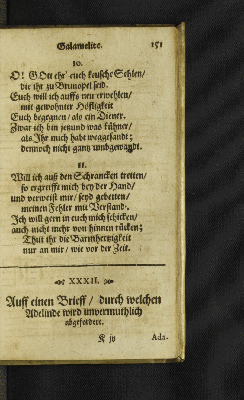 Galamelite. 151
10.
O! GOtt ehr' euch keusche Sehlen/
die ihr zu Brunopel seid.
Euch will ich auffs neu erwehlen/
mit gewohnter Höfligkeit
Euch begegnen/ als ein Diener.
Zwar ich bin jezund was kühner/
als Ihr mich habt weggesandt;
dennoch nicht gantz umbgewandt.
11.
Will ich auß den Schrancken tretten/
so ergreifft mich bey der Hand/
und verweist mir/ seyd gebetten/
meinen Fehler mit Verstand.
Ich will gern in euch mich schicken/
auch nicht mehr von hinnen rücken;
Thut ihr die Barmhertzigkeit
nur an mir/ wie vor der Zeit.
XXXII.
Auff einen Brieff/ durch welchen
Adelinde wird unvermuthlich
abgefordert.
K iv Ada-